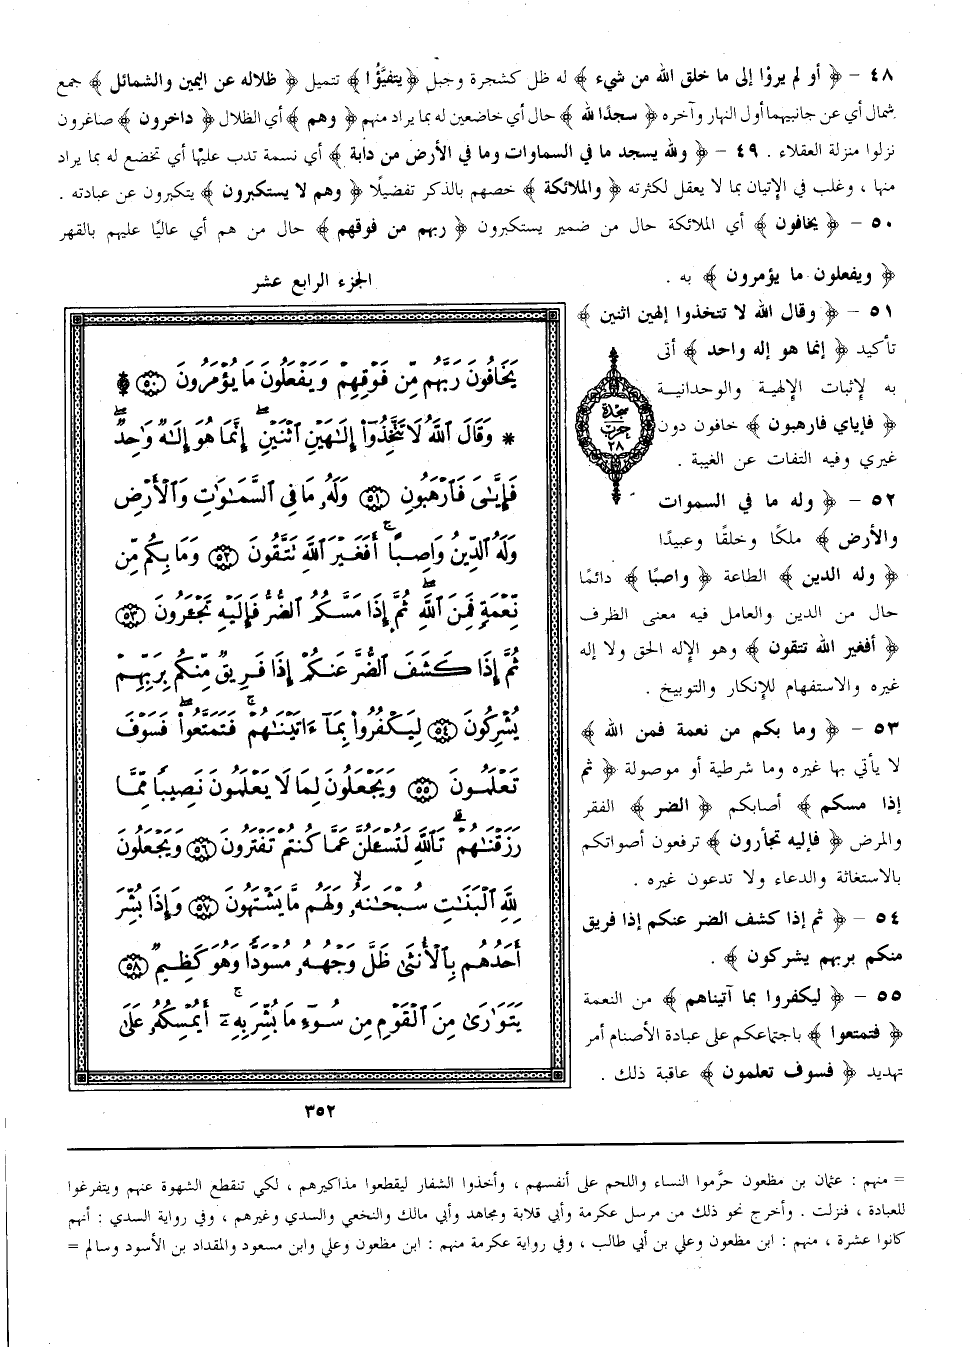 ٤٨ - ﴿ أو لم يروْا إلى ما خلق الله من شيء ﴾ له ظل كشجرة وجبل ﴿ يتفيَّؤُا ﴾ تتميل ﴿ ظلاله عن اليمين والشمائل ﴾ جمع
شمال أي عن جانبيهما أول النهار وآخره ﴿ سجدًا لله ﴾ حال أي خاضعين له بما يراد منهم ﴿ وهم ﴾ أي الظلال ﴿ داخرون ﴾ صاغرون
نزلوا منزلة العقلاء . ٤٩ - ﴿ ولله يسجد ما في السماوات وما في الأرض من دابة ﴾ أي نسمة تدب عليها أي تخضع له بما يراد
منها ، وغلب في الإتيان بما لا يعقل لكثرته ﴿ والملائكة ﴾ خصهم بالذكر تفضيلًا ﴿ وهم لا يستكبرون ﴾ يتكبرون عن عبادته .
٥٠ - ﴿ يخافون ﴾ أي الملائكة حال من ضمير يستكبرون ﴿ ربهم من فوقهم ﴾ حال من هم أي عاليًا عليهم بالقهر
﴿ ويفعلون ما يؤمرون ﴾ به .
٥١ - ﴿ وقال الله لا تتخذوا إلهين اثنين ﴾
تأكيد ﴿ إنما هو إله واحد ﴾ أتى
به لإثبات الإلهية والوحدانية
﴿ فإياي فارهبون ﴾ خافون دون
غيري وفيه التفات عن الغيبة .
٥٢ - ﴿ وله ما في السموات
والأرض ﴾ ملكًا وخلقًا وعبيدًا
﴿ وله الدين ﴾ الطاعة ﴿ واصبًا ﴾ دائمًا
حال من الدين والعامل فيه معنى الظرف
﴿ أفغير الله تتقون ﴾ وهو الإله الحق ولا إله
غيره والاستفهام للإنكار والتوبيخ .
٥٣ - ﴿ وما بكم من نعمة فمن الله ﴾
لا يأتي بها غيره وما شرطية أو موصولة ﴿ ثم
إذا مسكم ﴾ أصابكم ﴿ الضر ﴾ الفقر
والمرض ﴿ فإليه تجأرون ﴾ ترفعون أصواتكم
بالاستغاثة والدعاء ولا تدعون غيره .
٥٤ - ﴿ ثم إذا كشف الضر عنكم إذا فريق
منكم بربهم يشركون ﴾ .
٥٥ - ﴿ ليكفروا بما آتيناهم ﴾ من النعمة
﴿ فتمتعوا ﴾ باجتماعكم على عبادة الأصنام أمر
تهديد ﴿ فسوف تعلمون ﴾ عاقبة ذلك .
الجزء الرابع عشر
يَخَافُونَ رَبَّهُم مِّن فَوْقِهِمْ وَيَفْعَلُونَ مَا يُؤْمَرُونَ ۩ ٥٠
* وَقَالَ ٱللَّهُ لَا تَتَّخِذُوٓا۟ إِلَٰهَيْنِ ٱثْنَيْنِ ۖ إِنَّمَا هُوَ إِلَٰهٌ وَٰحِدٌ ۖ
فَإِيَّٰىَ فَٱرْهَبُونِ ٥١ وَلَهُۥ مَا فِى ٱلسَّمَٰوَٰتِ وَٱلْأَرْضِ
وَلَهُ ٱلدِّينُ وَاصِبًا ۚ أَفَغَيْرَ ٱللَّهِ تَتَّقُونَ ٥٢ وَمَا بِكُم مِّن
نِّعْمَةٍ فَمِنَ ٱللَّهِ ۖ ثُمَّ إِذَا مَسَّكُمُ ٱلضُّرُّ فَإِلَيْهِ تَجْـَٔرُونَ ٥٣
ثُمَّ إِذَا كَشَفَ ٱلضُّرَّ عَنكُمْ إِذَا فَرِيقٌ مِّنكُم بِرَبِّهِمْ
يُشْرِكُونَ ٥٤ لِيَكْفُرُوا۟ بِمَآ ءَاتَيْنَٰهُمْ ۚ فَتَمَتَّعُوا۟ ۖ فَسَوْفَ
تَعْلَمُونَ ٥٥ وَيَجْعَلُونَ لِمَا لَا يَعْلَمُونَ نَصِيبًا مِّمَّا
رَزَقْنَٰهُمْ ۗ تَٱللَّهِ لَتُسْـَٔلُنَّ عَمَّا كُنتُمْ تَفْتَرُونَ ٥٦ وَيَجْعَلُونَ
لِلَّهِ ٱلْبَنَٰتِ سُبْحَٰنَهُۥ ۙ وَلَهُم مَّا يَشْتَهُونَ ٥٧ وَإِذَا بُشِّرَ
أَحَدُهُم بِٱلْأُنثَىٰ ظَلَّ وَجْهُهُۥ مُسْوَدًّا وَهُوَ كَظِيمٌ ٥٨
يَتَوَٰرَىٰ مِنَ ٱلْقَوْمِ مِن سُوٓءِ مَا بُشِّرَ بِهِۦٓ ۚ أَيُمْسِكُهُۥ عَلَىٰ
سجدة
حزب
٢٨
٣٥٢
= منهم : عثمان بن مظعون حرَّموا النساء واللحم على أنفسهم ، وأخذوا الشفار ليقطعوا مذاكيرهم ، لكي تنقطع الشهوة عنهم ويتفرغوا
للعبادة ، فنزلت . وأخرج نحو ذلك من مرسل عكرمة وأبي قلابة ومجاهد وأبي مالك والنخعي والسدي وغيرهم ، وفي رواية السدي : أنهم
كانوا عشرة ، منهم : ابن مظعون وعلي بن أبي طالب ، وفي رواية عكرمة منهم : ابن مظعون وعلي وابن مسعود والمقداد بن الأسود وسالم =